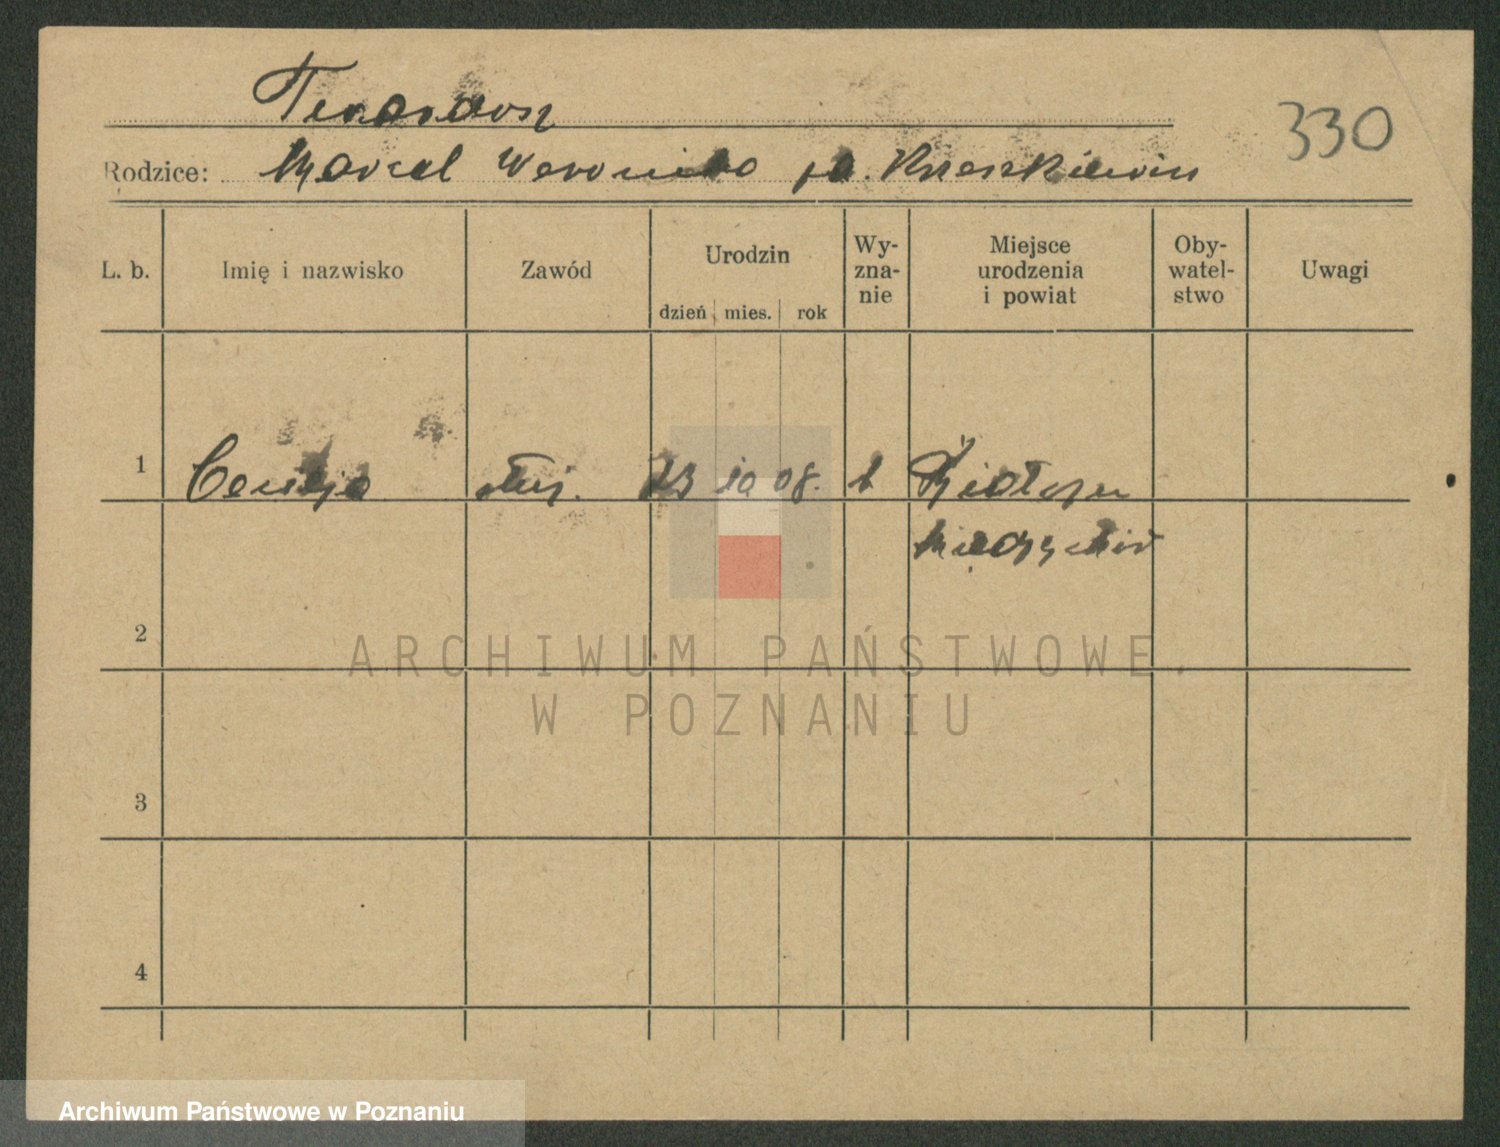 330
Rodzice: Marcel Weronika
L. b.
Imię i nazwisko
Zawód
Urodzin
dzień mies. rok
Wy-
zna-
nie
Miejsce
urodzenia
i powiat
Oby-
watel-
stwo
Uwagi
1
służ. 23 10 08.
2
3
4
ARCHIWUM PAŃSTWOWE
W POZNANIU
Archiwum Państwowe w Poznaniu